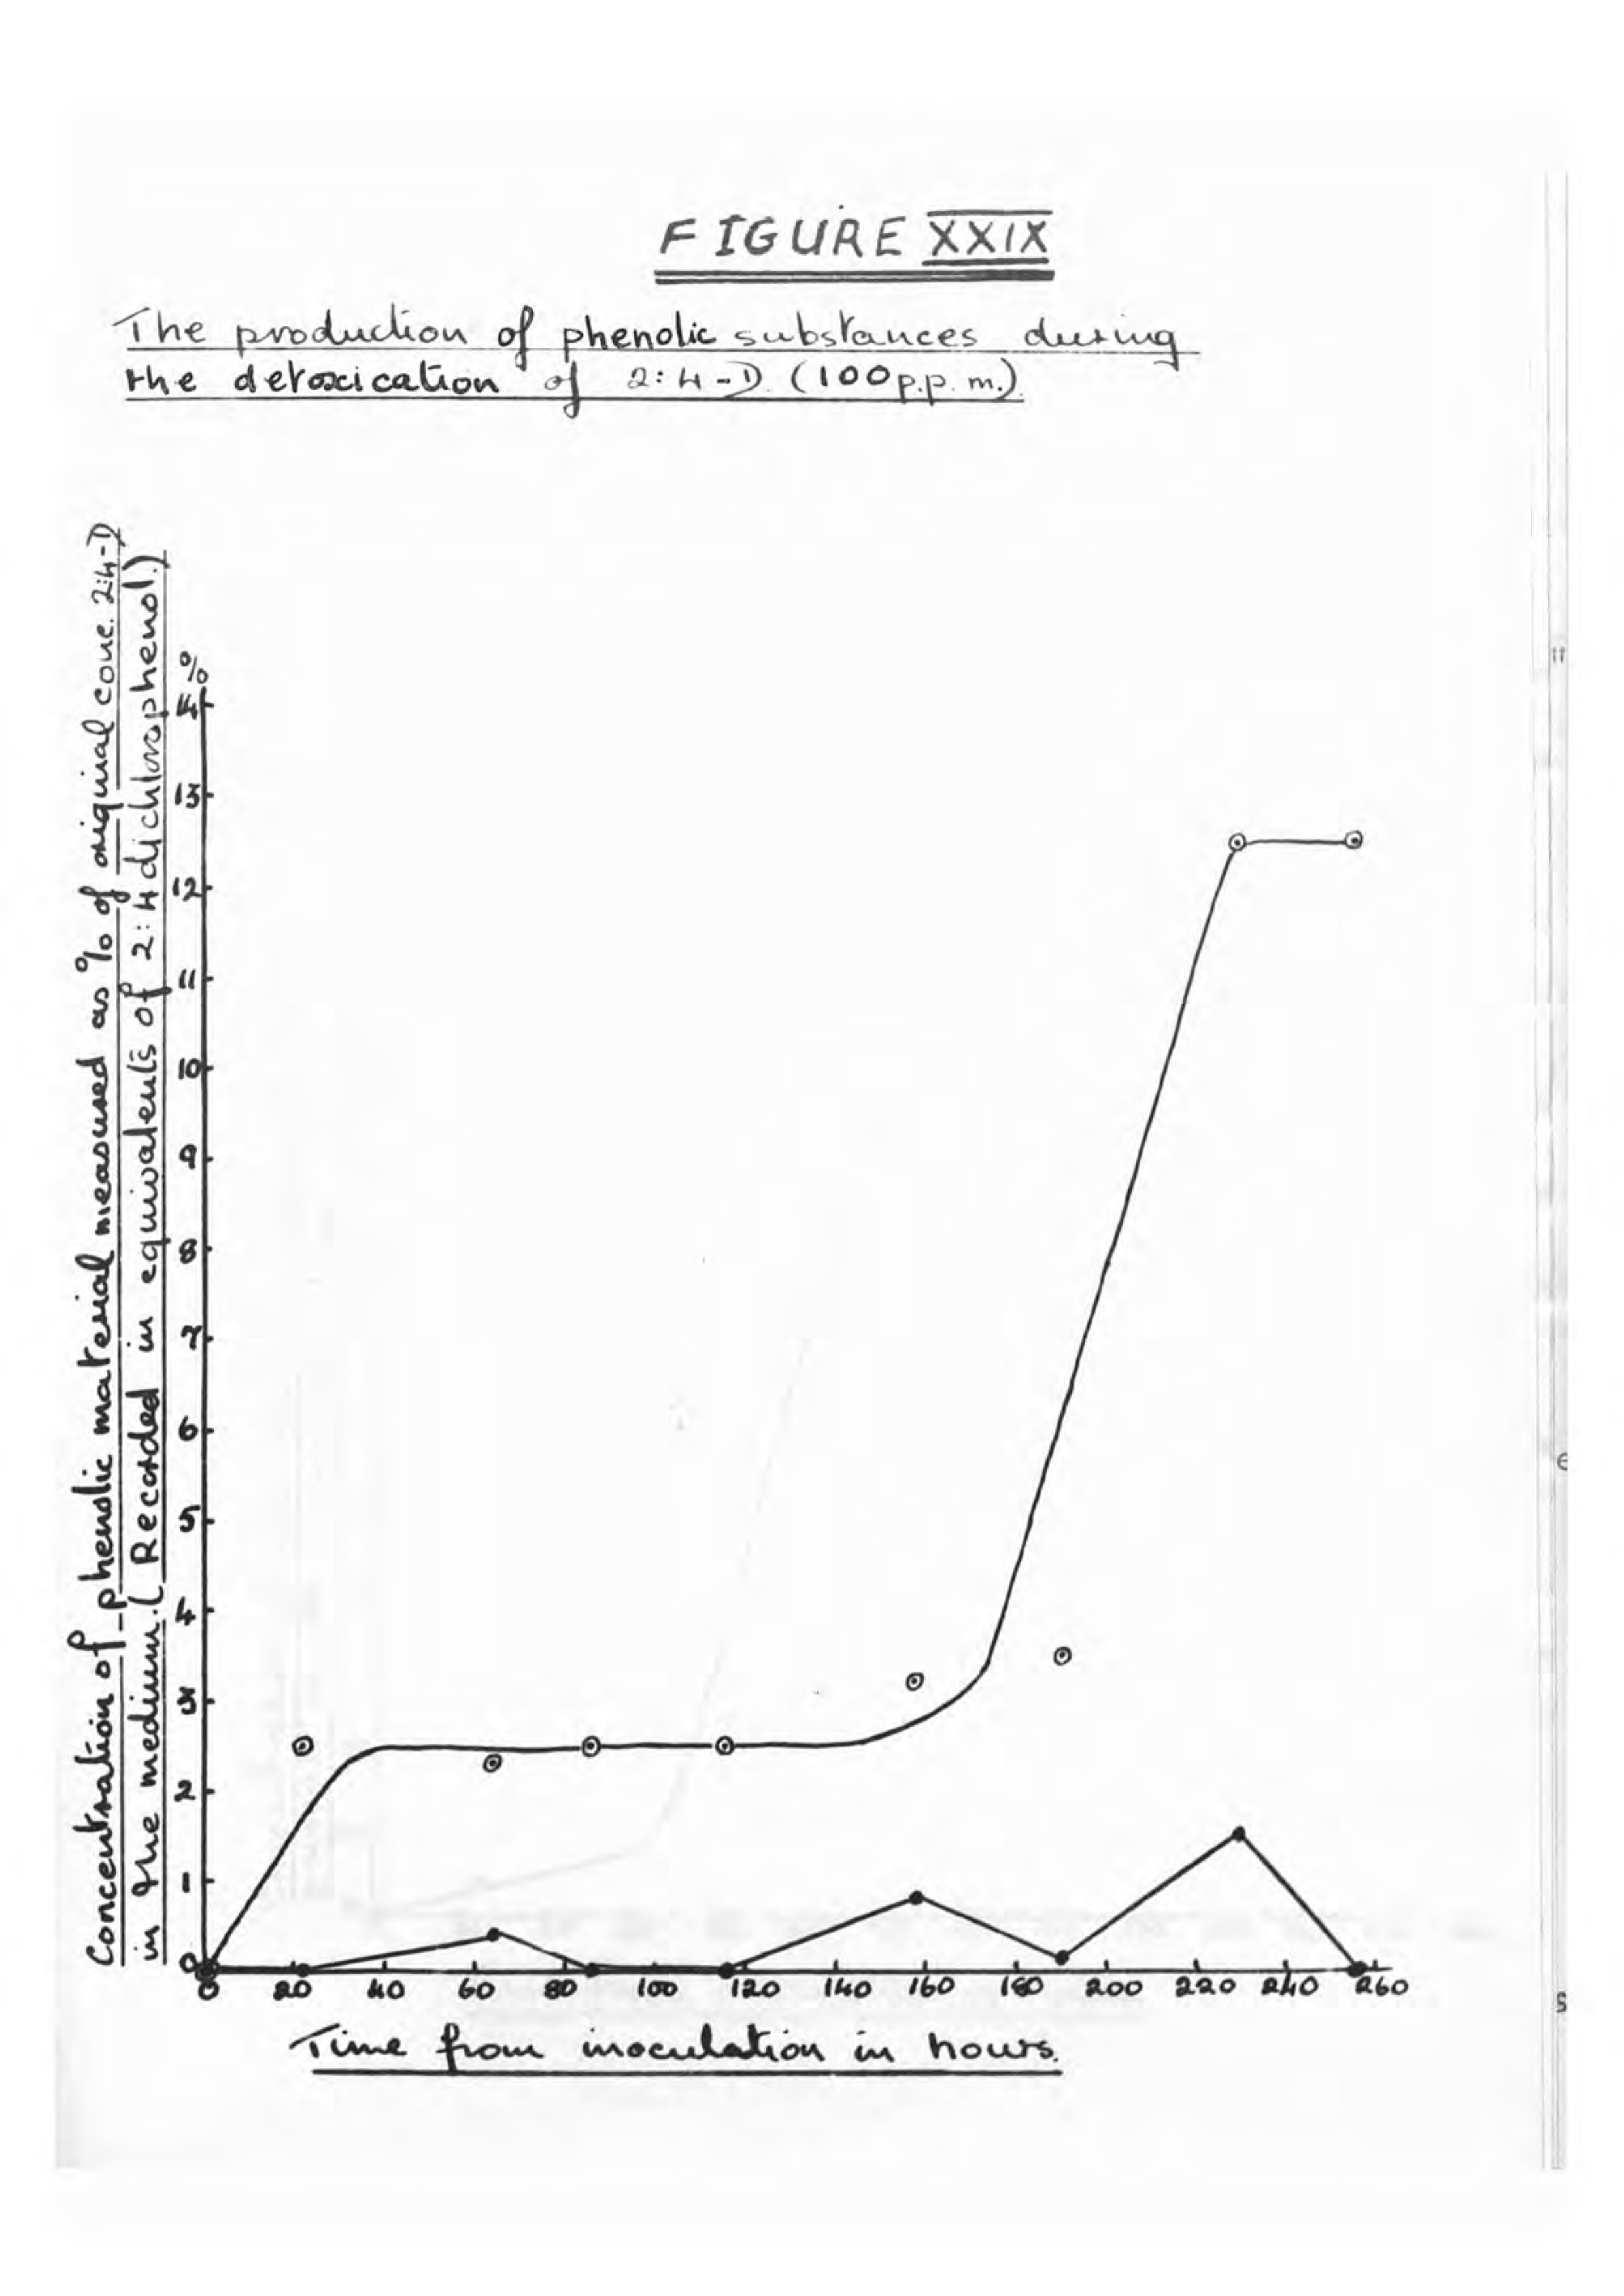 FIGURE XXIX
The production of phenolic substances during
the detoxication of 2:4-D. (100 p.p.m.).
Concentration of phenolic material measured as % of original conc. 2:4-D
in the medium. (Recorded in equivalents of 2:4 dichlorophenol.)
%
14
13
12
11
10
9
8
7
6
5
4
3
2
1
0
0 20 40 60 80 100 120 140 160 180 200 220 240 260
Time from inoculation in hours.